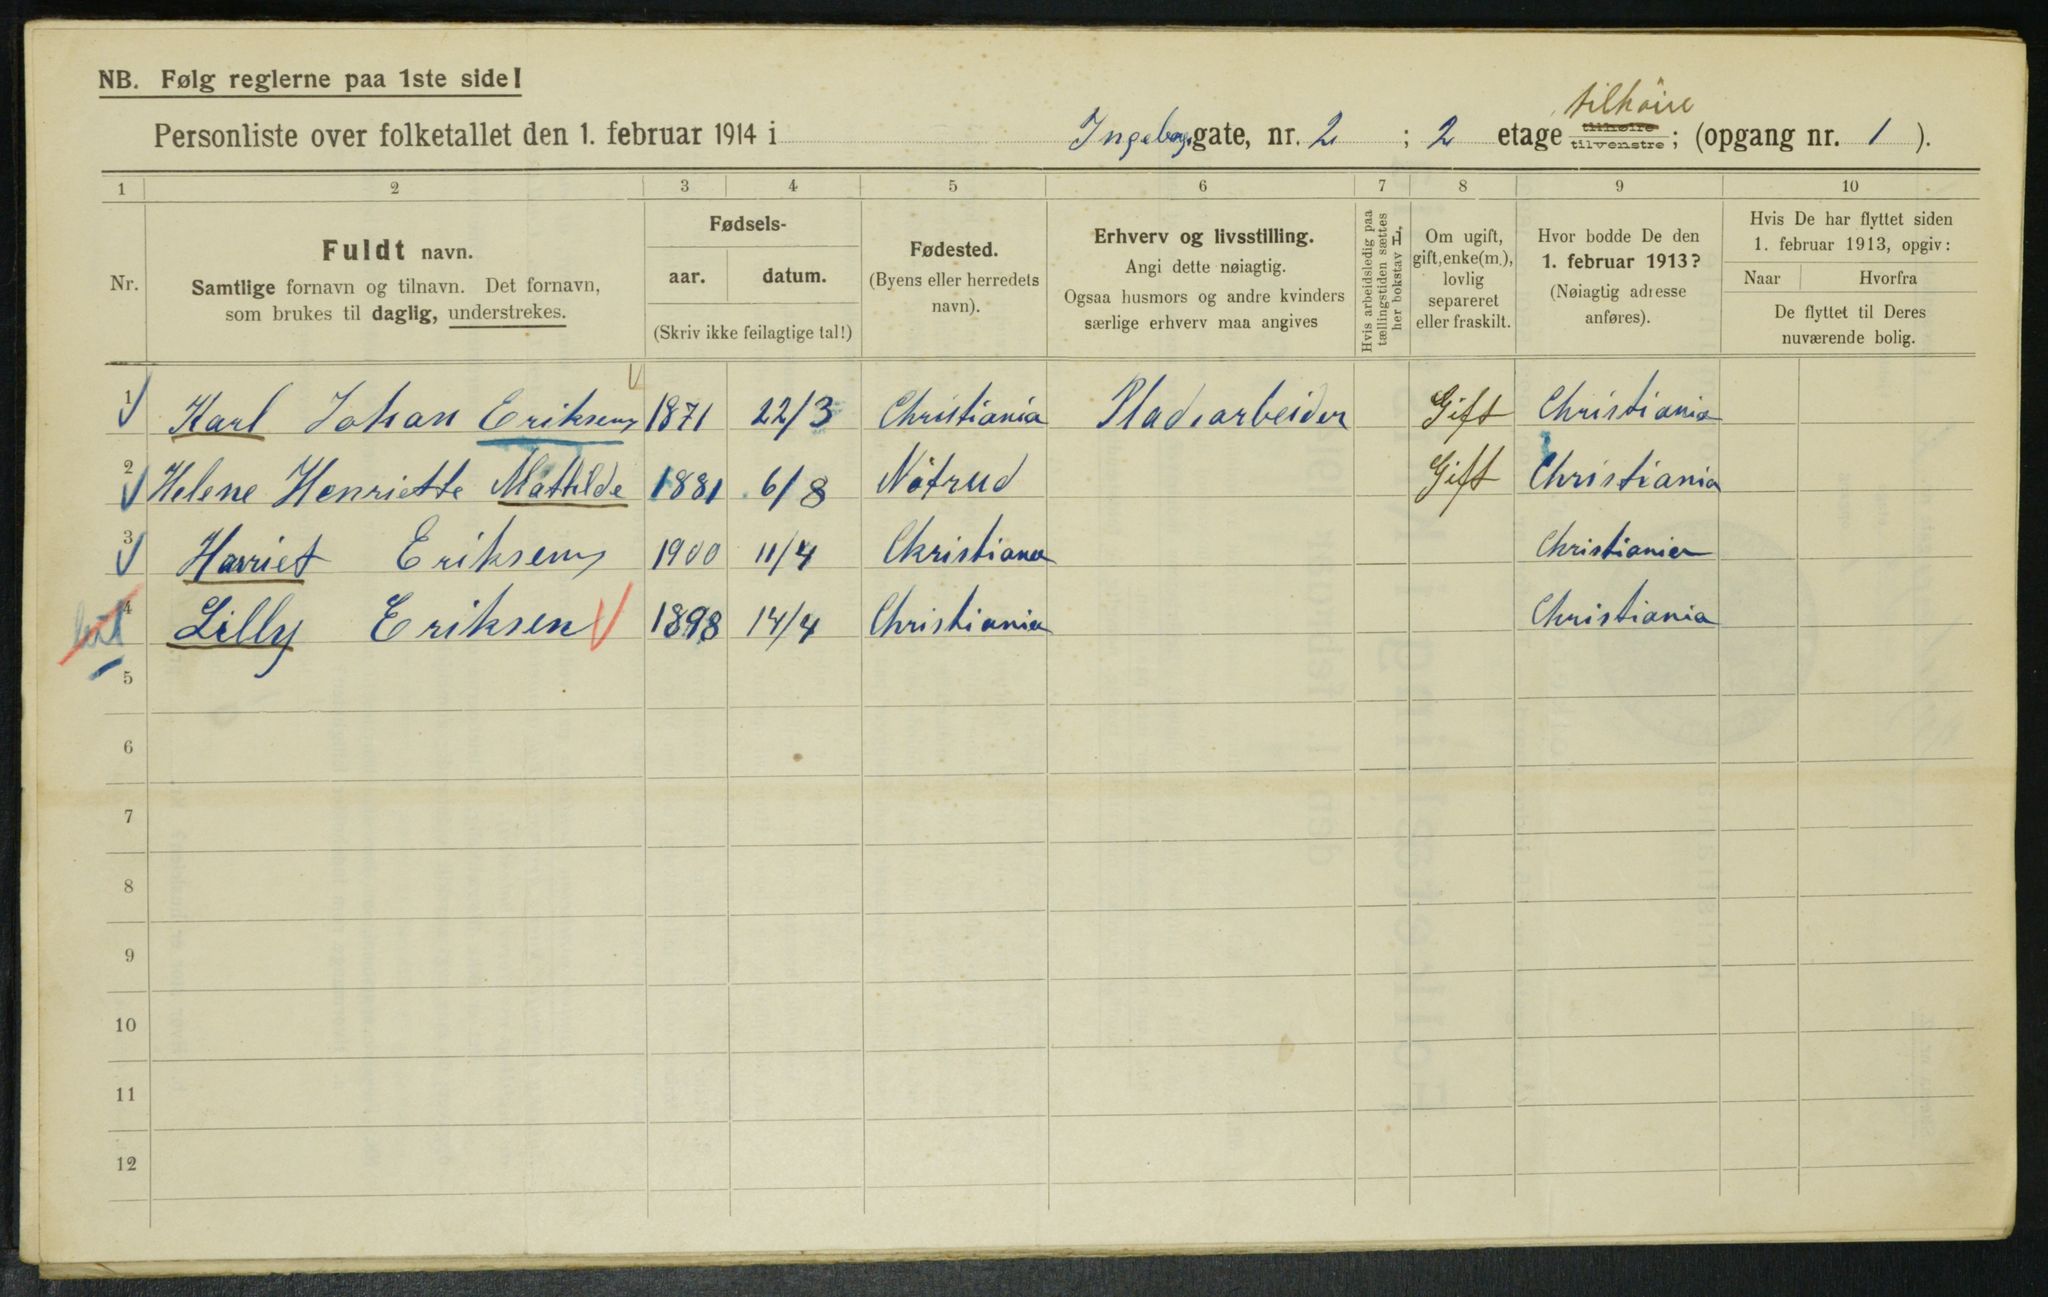 NB. Følg reglerne paa 1ste side!
tilhöire
Personliste over folketallet den 1. februar 1914 i Ingeborgsgate, nr. 2 ; 2 etage tilhøire tilvenstre; (opgang nr. 1 ).
1 2 3 4 5 6 7 8 9 10
Nr.
Fuldt navn.
Samtlige fornavn og tilnavn. Det fornavn,
som brukes til daglig, understrekes.
Fødsels-
aar. datum.
(Skriv ikke feilagtige tal!)
Fødested.
(Byens eller herredets
navn).
Erhverv og livsstilling.
Angi dette nøiagtig.
Ogsaa husmors og andre kvinders
særlige erhverv maa angives
Hvis arbeidsledig paa
tællingstiden sættes
her bokstav H.
Om ugift,
gift, enke(m.),
lovlig
separeret
eller fraskilt.
Hvor bodde De den
1. februar 1913?
(Nøiagtig adresse
anføres).
Hvis De har flyttet siden
1. februar 1913, opgiv:
Naar Hvorfra
De flyttet til Deres
nuværende bolig.
1 Karl Johan Eriksen 1871 22/3 Christiania Pladsarbeider Gift Christiania
2 Helene Henriette Mathilde 1881 6/8 Gift Christiania
3 Harriet Eriksen 1900 11/4 Christiania Christiania
4 Lilly Eriksen 1898 14/4 Christiania Christiania
5
6
7
8
9
10
11
12